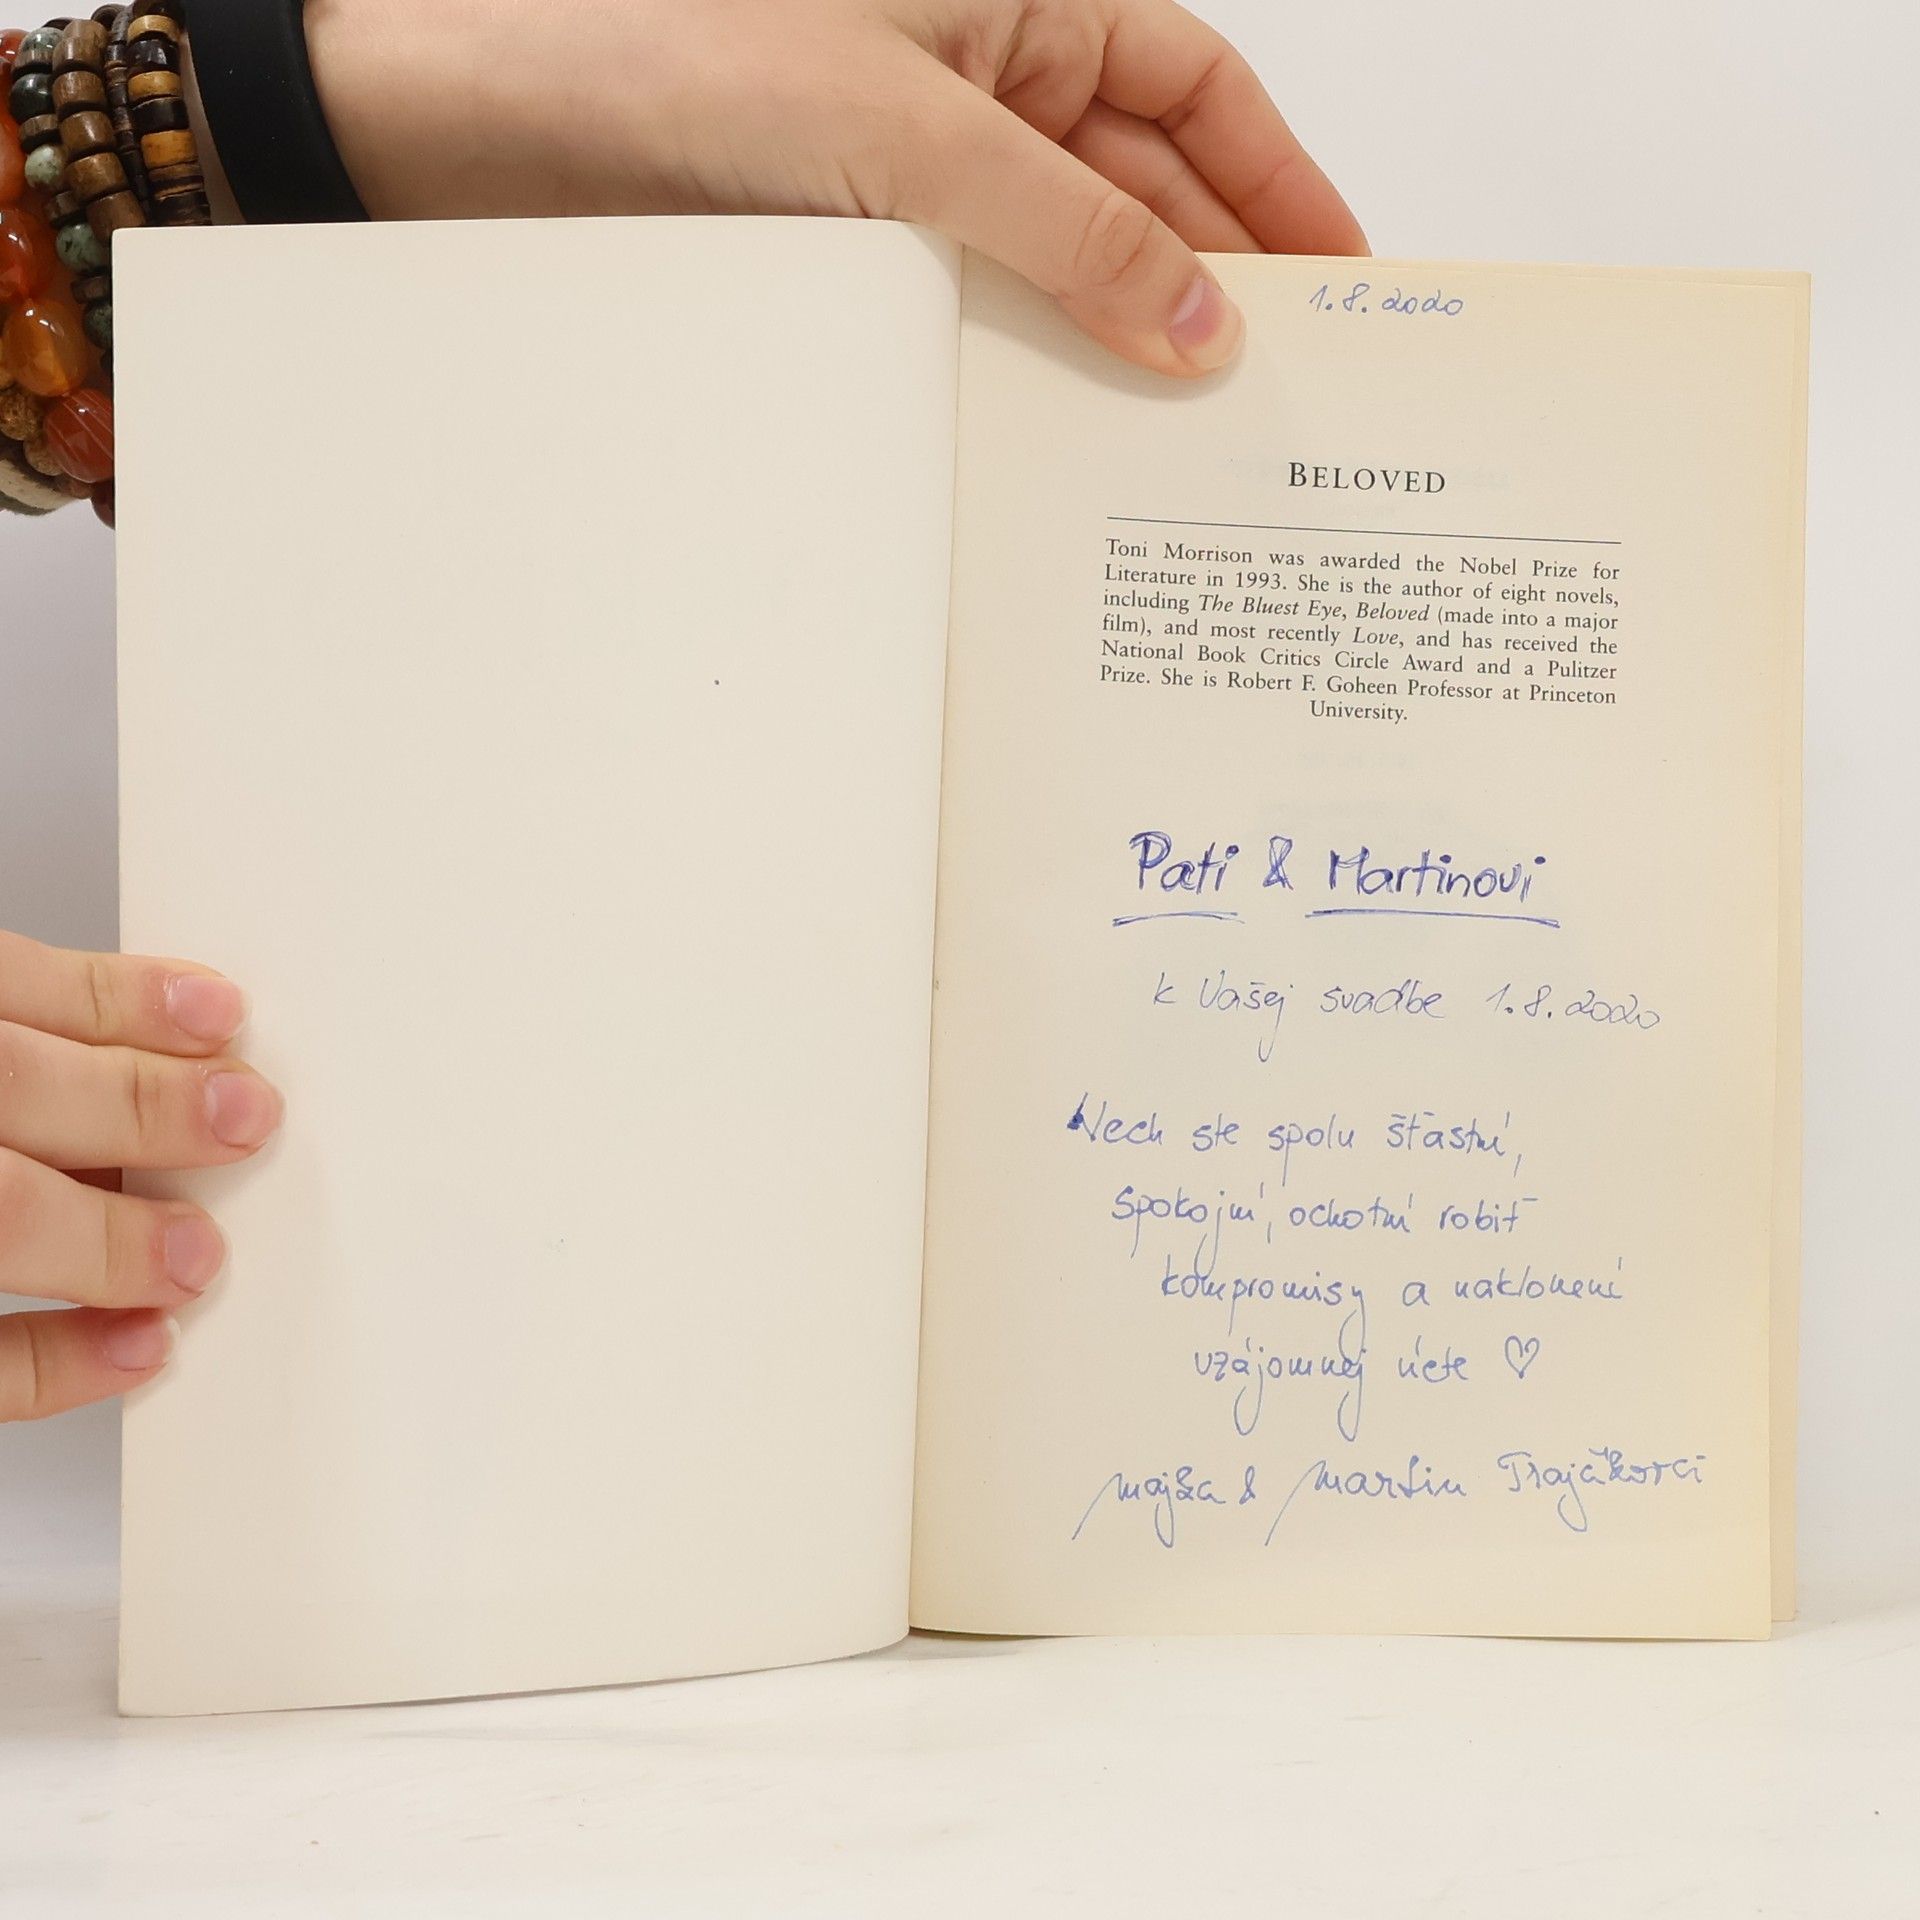 1.8.2020
BELOVED
Toni Morrison was awarded the Nobel Prize for
Literature in 1993. She is the author of eight novels,
including The Bluest Eye, Beloved (made into a major
film), and most recently Love, and has received the
National Book Critics Circle Award and a Pulitzer
Prize. She is Robert F. Goheen Professor at Princeton
University.
Pati & Martinovi
k Vašej svadbe 1.8.2020
Nech ste spolu šťastní,
spokojní, ochotní robiť
kompromisy a naklonení
vzájomnej úcte ♡
Majka & Martin